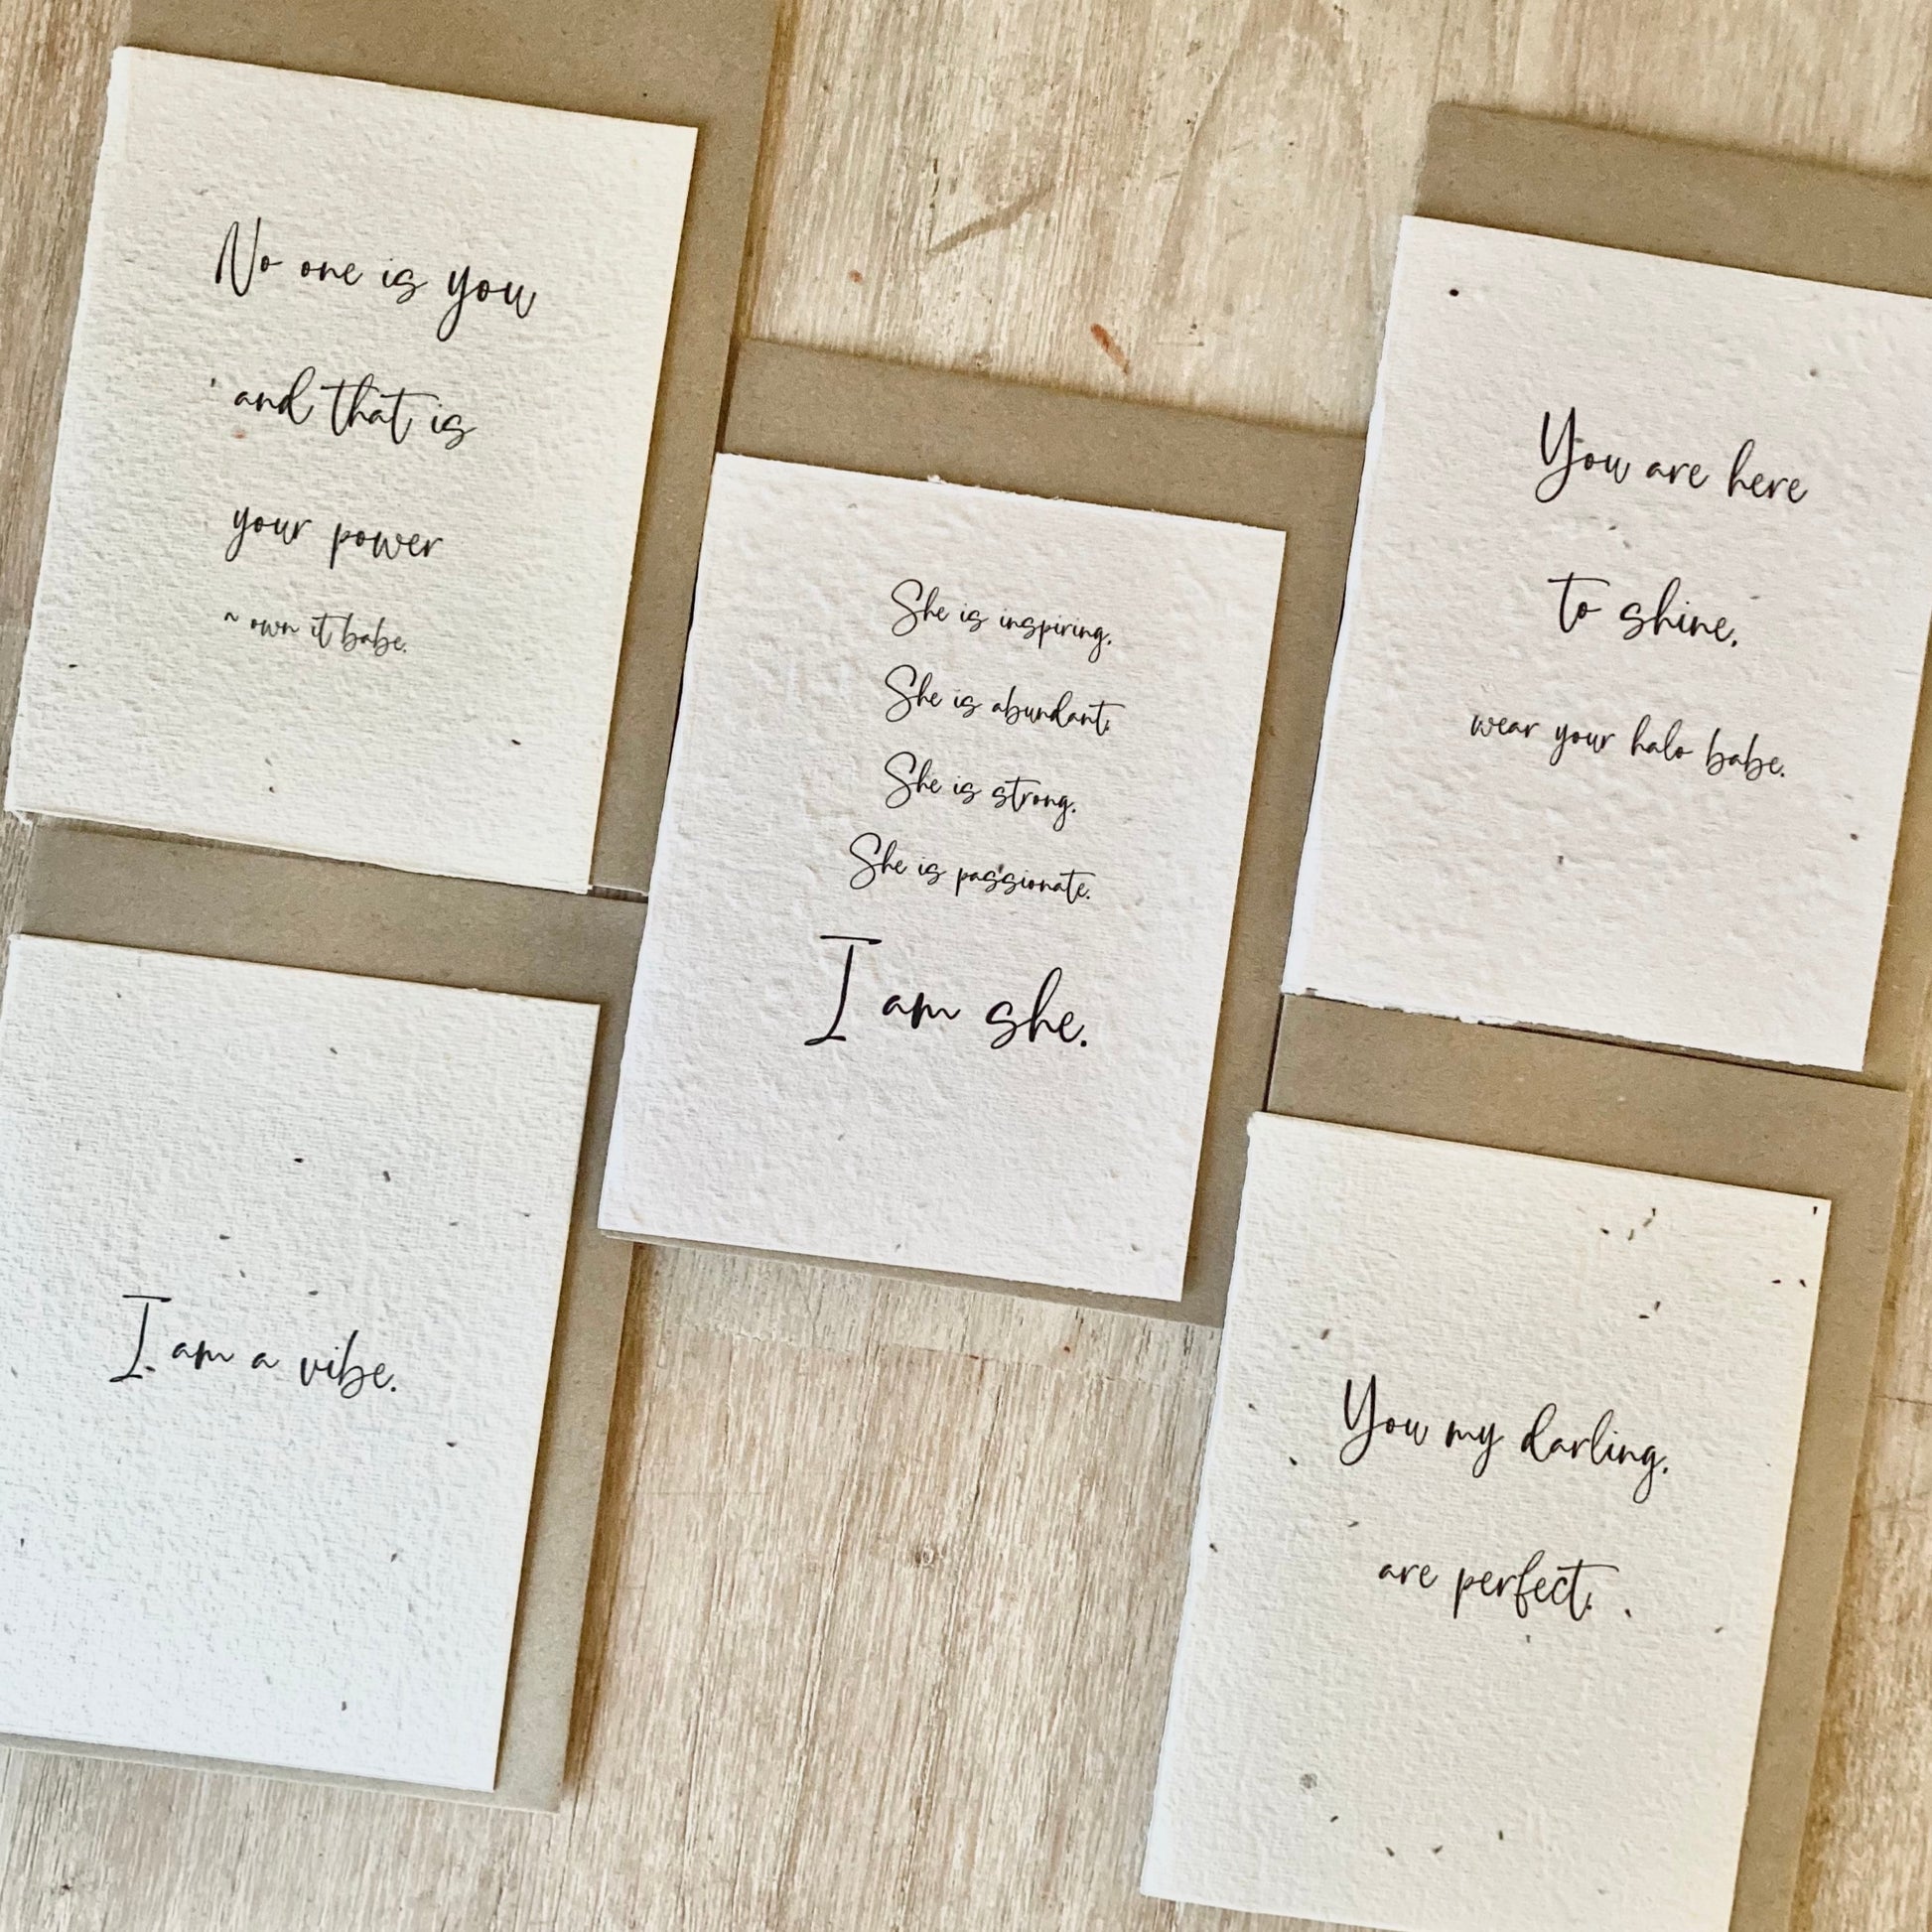 No one is you
and that is
your power
~ own it babe.
She is inspiring.
She is abundant.
She is strong.
She is passionate.
I am she.
You are here
to shine.
wear your halo babe.
I am a vibe.
You my darling.
are perfect.